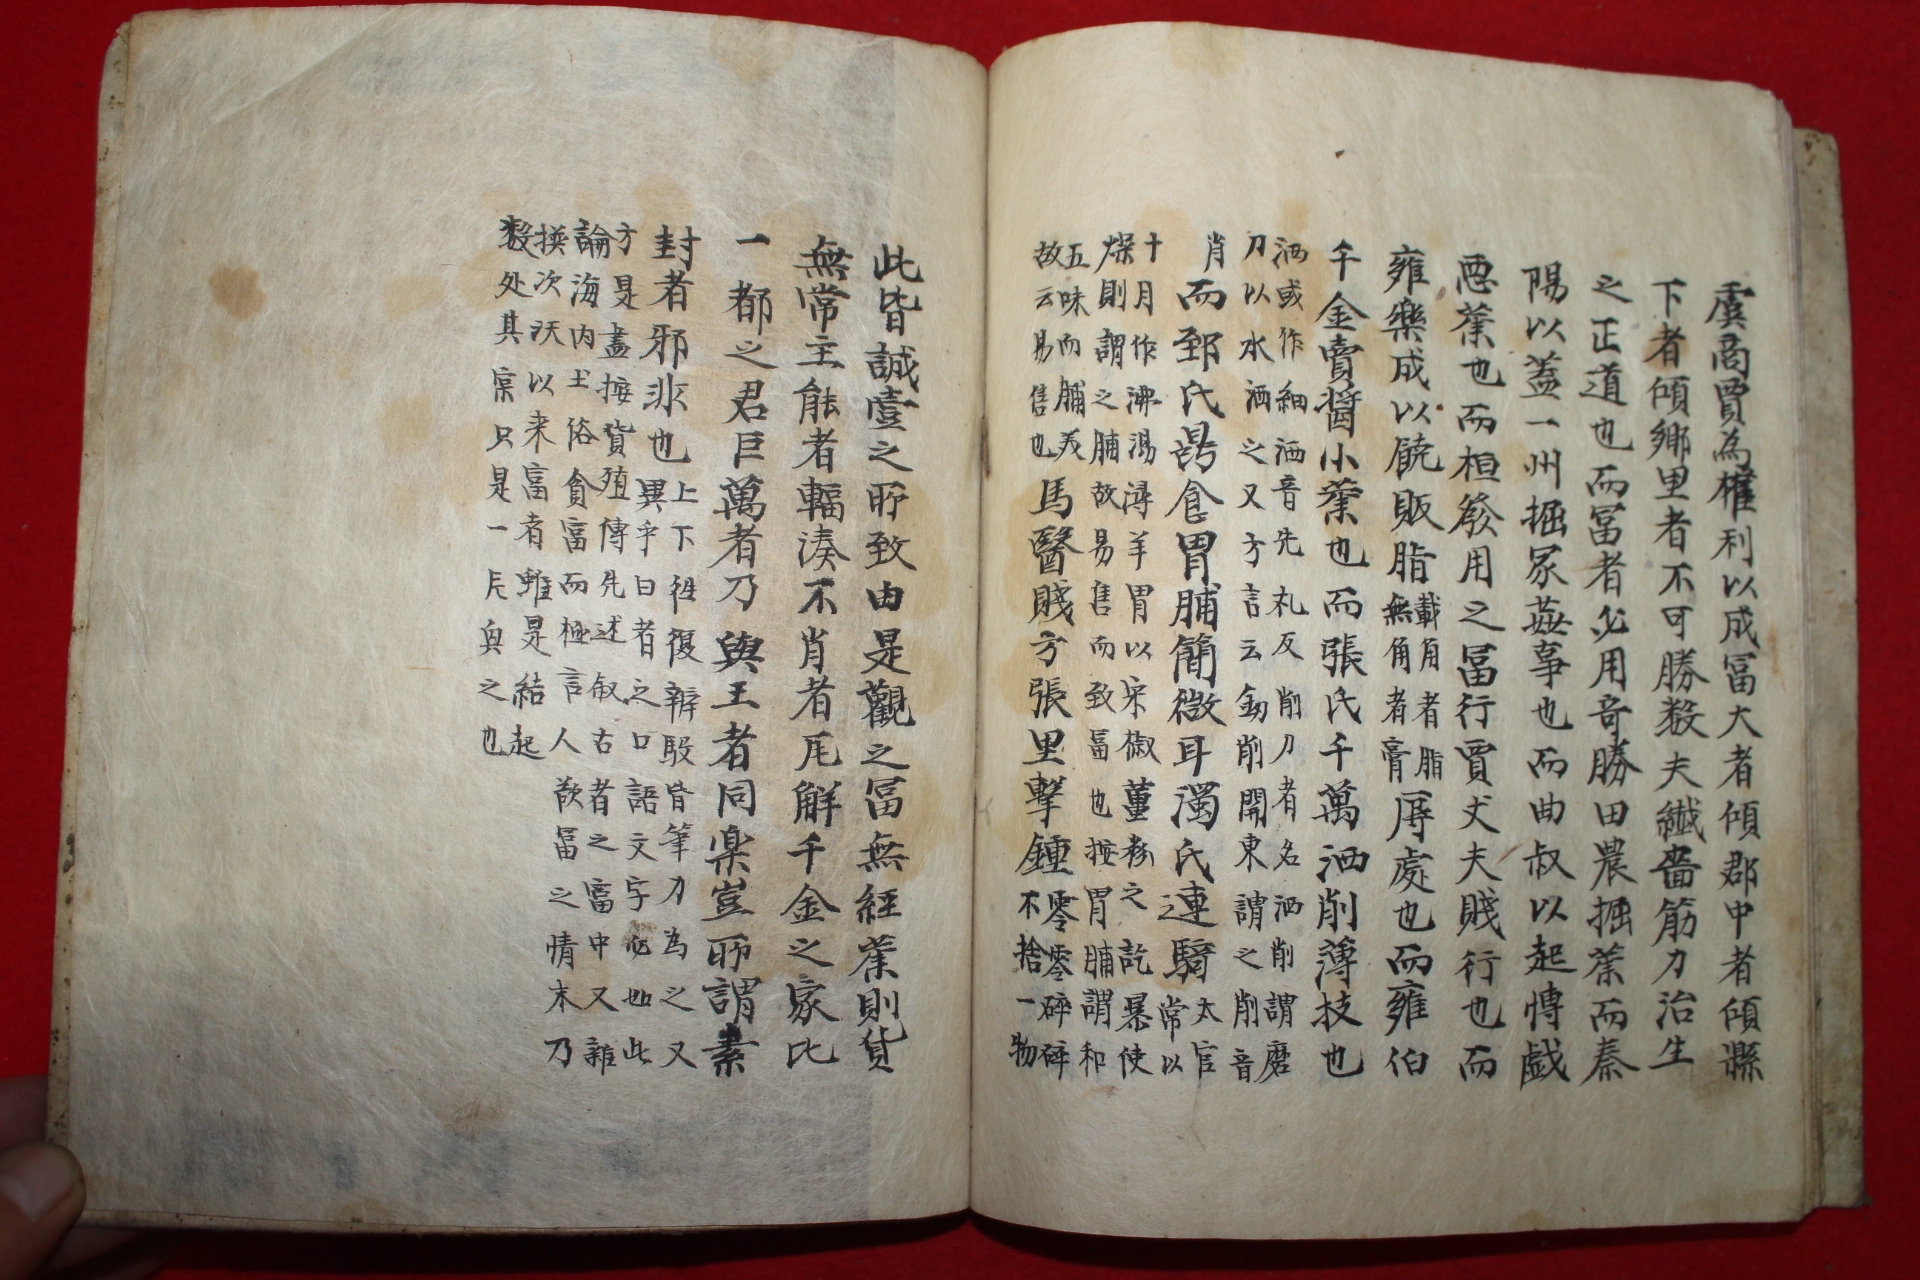 虞商賈為權利以成冨大者傾郡中者傾縣
下者傾鄉里者不可勝數夫纎嗇筋力治生
之正道也而冨者必用奇勝田農掘業而秦
陽以盖一州掘冢姦事也而曲叔以起愽戯
惡業也而桓發用之冨行賈丈夫賤行也而
雍樂成以饒販脂
戴角者脂
無角者膏
辱處也而雍伯
千金賣醬小業也而張氏千萬洒削薄技也
洒或作細洒音先礼反削刀者名洒削謂磨
刀以水洒之又方言云劒削関東謂之削音
肖
而郅氏鼎食胃脯簡微耳濁氏連騎
太官
常以
十月作沸湯潯羊胃以宋椒薑粉之訖暴使
燥則謂之脯故易售而致冨也按胃脯謂和
五味而脯美
故云易售也
馬醫賤方張里擊鍾
零零碎碎
不捨一物
此皆誠壹之所致由是觀之冨無經業則貨
無常主能者輻湊不肖者瓦解千金之家比
一都之君巨萬者乃與王者同樂豈所謂素
封者邪非也
上下徃復辨駁皆筆力為之又
異乎日者之口語文字必如此
方是盡按貨殖傳先述叙古者之富中又雜
論海内土俗貪富而極言人歆冨之情末乃
㨂次沃以来富者雖是結起
數处其寀只是一片與之也